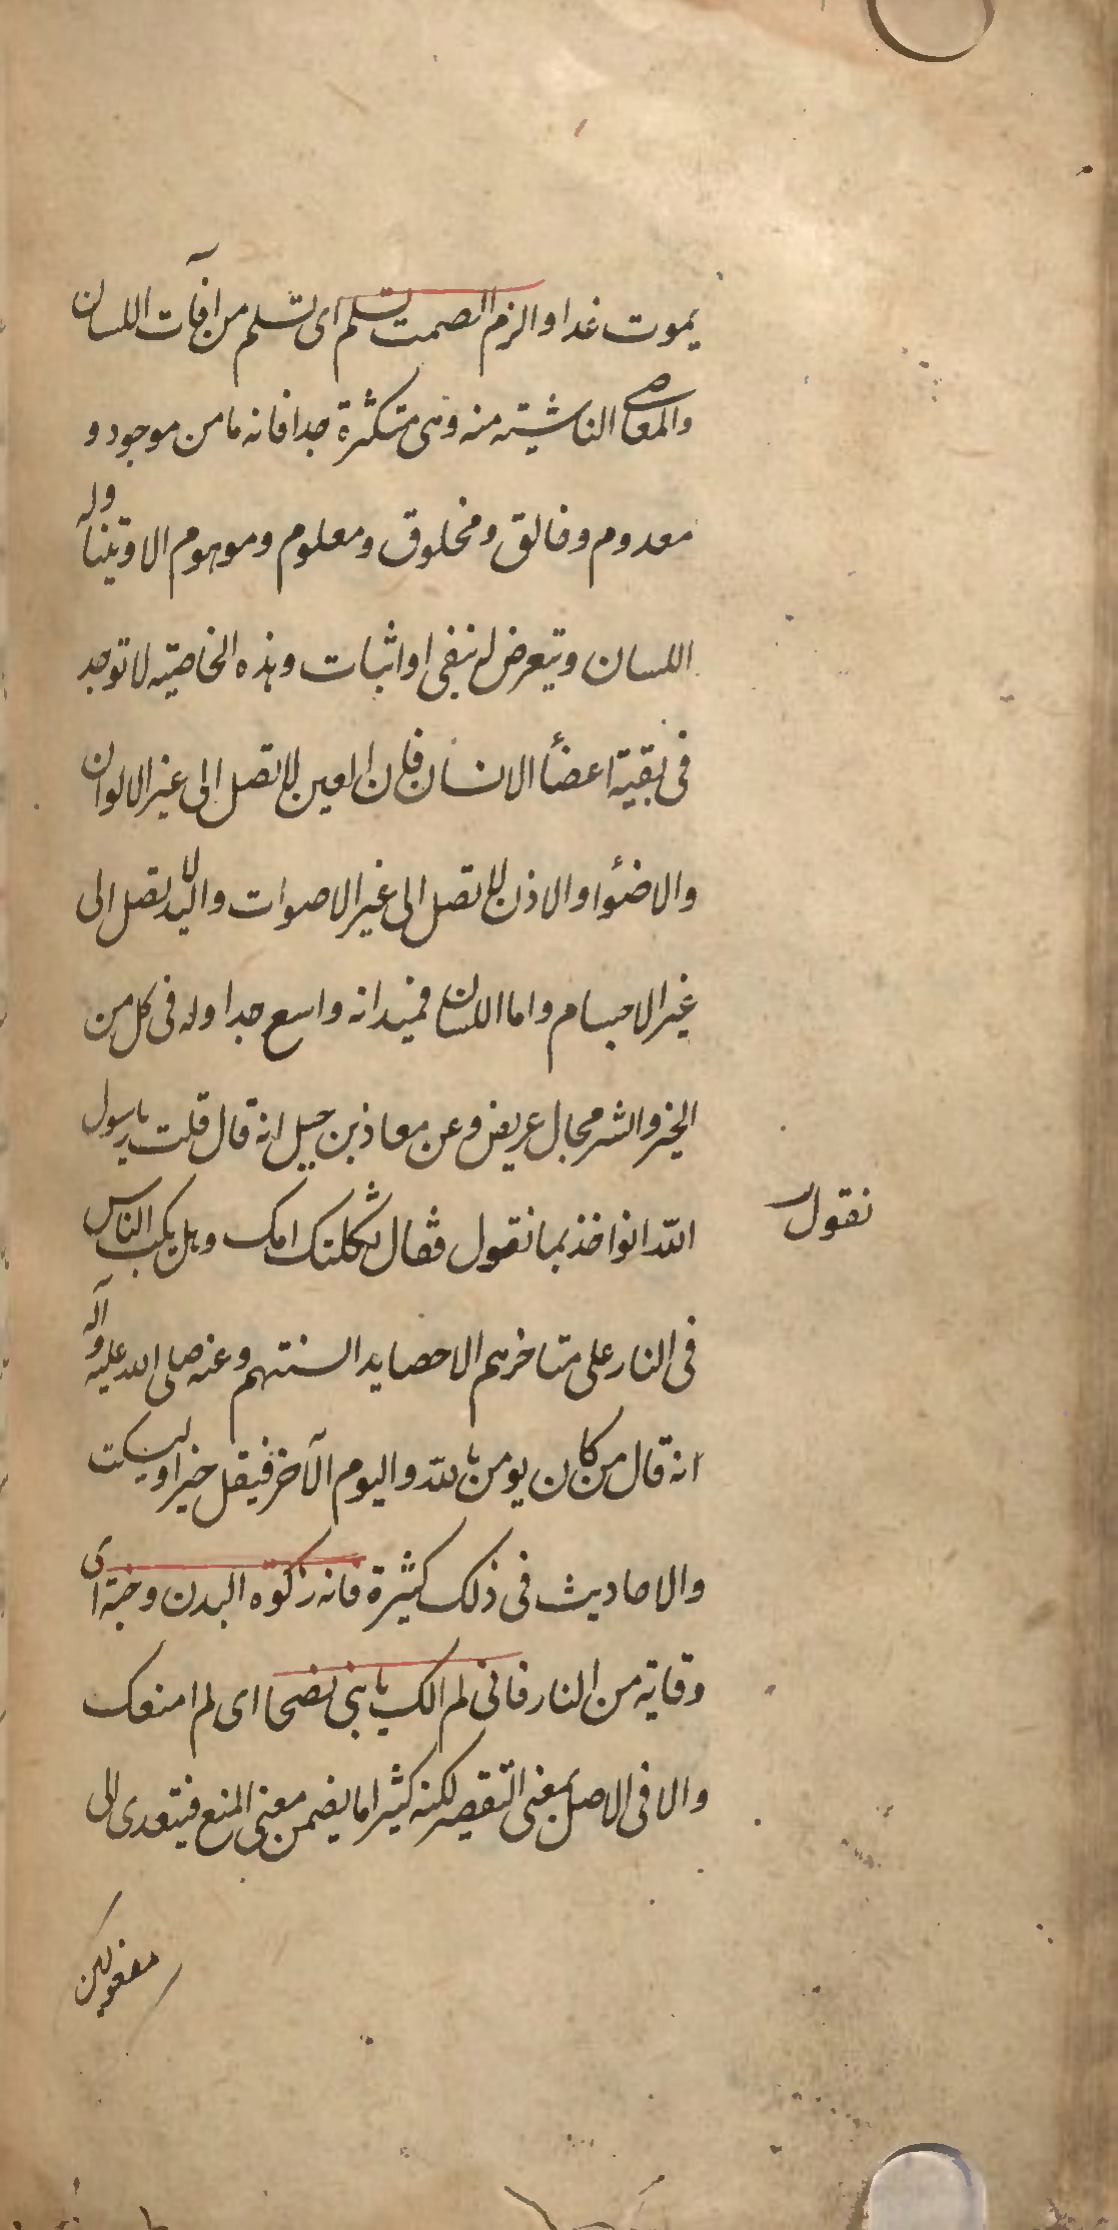 يموت غدا والزم الصمت تسلم اى تسلم من افآت اللسان
والمعاصى الناشيته منه وهى متكثرة جدا فانه ما من موجود و
معدوم وخالق ومخلوق ومعلوم وموهوم الا ويتناوله
اللسان ويتعرض له بنفى او اثبات وهذه الخاصيته لا توجد
فى بقية اعضأ الانسان فان العين لا تصل الى غير الالوان
والاضئوا والاذن لا تصل الى غير الاصوات واليد لا تصل الى
غير الاجسام واما اللسان فميدانه واسع جدا وله فى كل من
الخير والشر مجال عريض وعن معاذ بن جبل انه قال قلت يا رسول
الله انواخذ بما نقول فقال ثكلتك امك وهل يكب الناس
نقول
فى النار على مناخرهم الا حصايد السنتهم وعنه صلى الله عليه وآله
انه قال من كان يومن بالله واليوم الآخر فيقل خيرا او ليسكت
والاحاديث فى ذلك كثيرة فانه زكوه البدن وجنة اى
وقاية من النار فانى لم الك يا بنى نصحا اى لم امنعك
والا فى الاصل بمعنى التقصير لكنه كثيرا ما يضمن معنى المنع فيتعدى الى
مفعولين